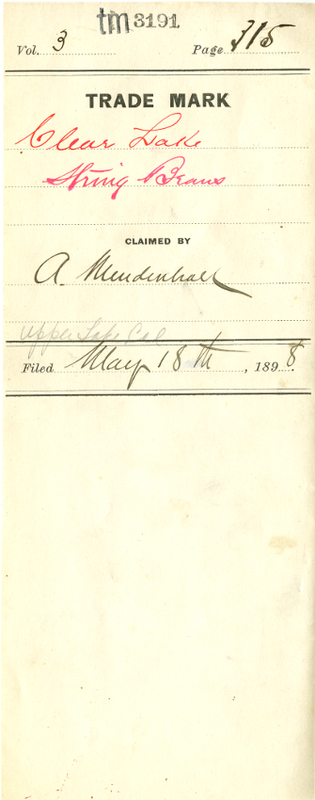 tm 3191
Vol. 3 Page 315
TRADE MARK
Clear Lake
String Beans
CLAIMED BY
A. Mendenhall
Upper Lake Cal
Filed May 18th, 1898.